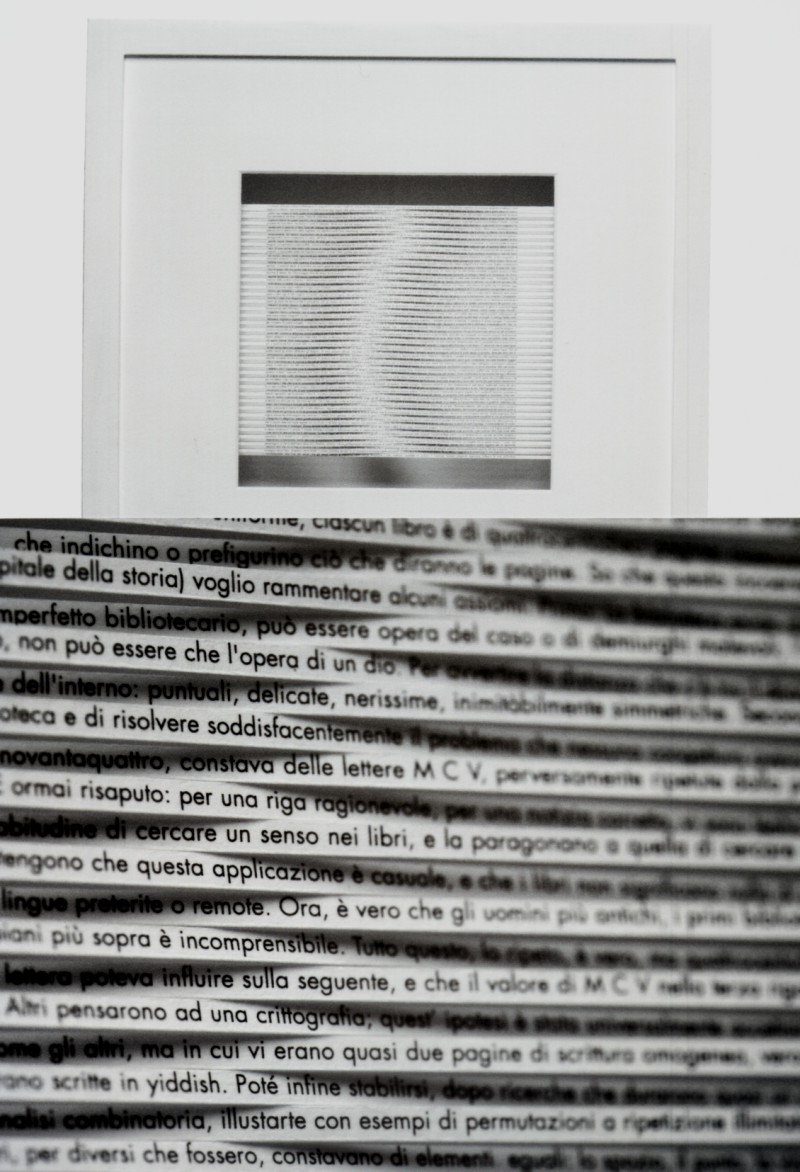 uniforme, ciascun libro è di
che indichino o prefigurino ciò che diranno le pagine. So che questa
pitale della storia) voglio rammentare alcuni assiomi. Primo: La
mperfetto bibliotecario, può essere opera del caso o di demiurghi malevoli.
, non può essere che l'opera di un dio. Per avvertire la distanza che
dell'interno: puntuali, delicate, nerissime, inimitabilmente simmetriche. Secondo
oteca e di risolvere soddisfacentemente il problema che nessuna
novantaquattro, constava delle lettere M C V, perversamente ripetute dalla
ormai risaputo: per una riga ragionevole, per una notizia corretta,
abitudine di cercare un senso nei libri, e la paragonano a quella di cercare
tengono che questa applicazione è casuale, e che i libri non significano nulla
lingue preterite o remote. Ora, è vero che gli uomini più antichi, i primi
iani più sopra è incomprensibile. Tutto questo, lo ripeto, è vero, ma
lettera poteva influire sulla seguente, e che il valore di M C V nella terza riga
Altri pensarono ad una crittografia; quest' ipotesi è stata universalmente
ome gli altri, ma in cui vi erano quasi due pagine di scrittura omogenea,
rano scritte in yiddish. Poté infine stabilirsi, dopo ricerche che durarono quasi
nalisi combinatoria, illustarte con esempi di permutazioni a ripetizione
ri, per diversi che fossero, constavano di elementi eguali: lo spazio, il punto,